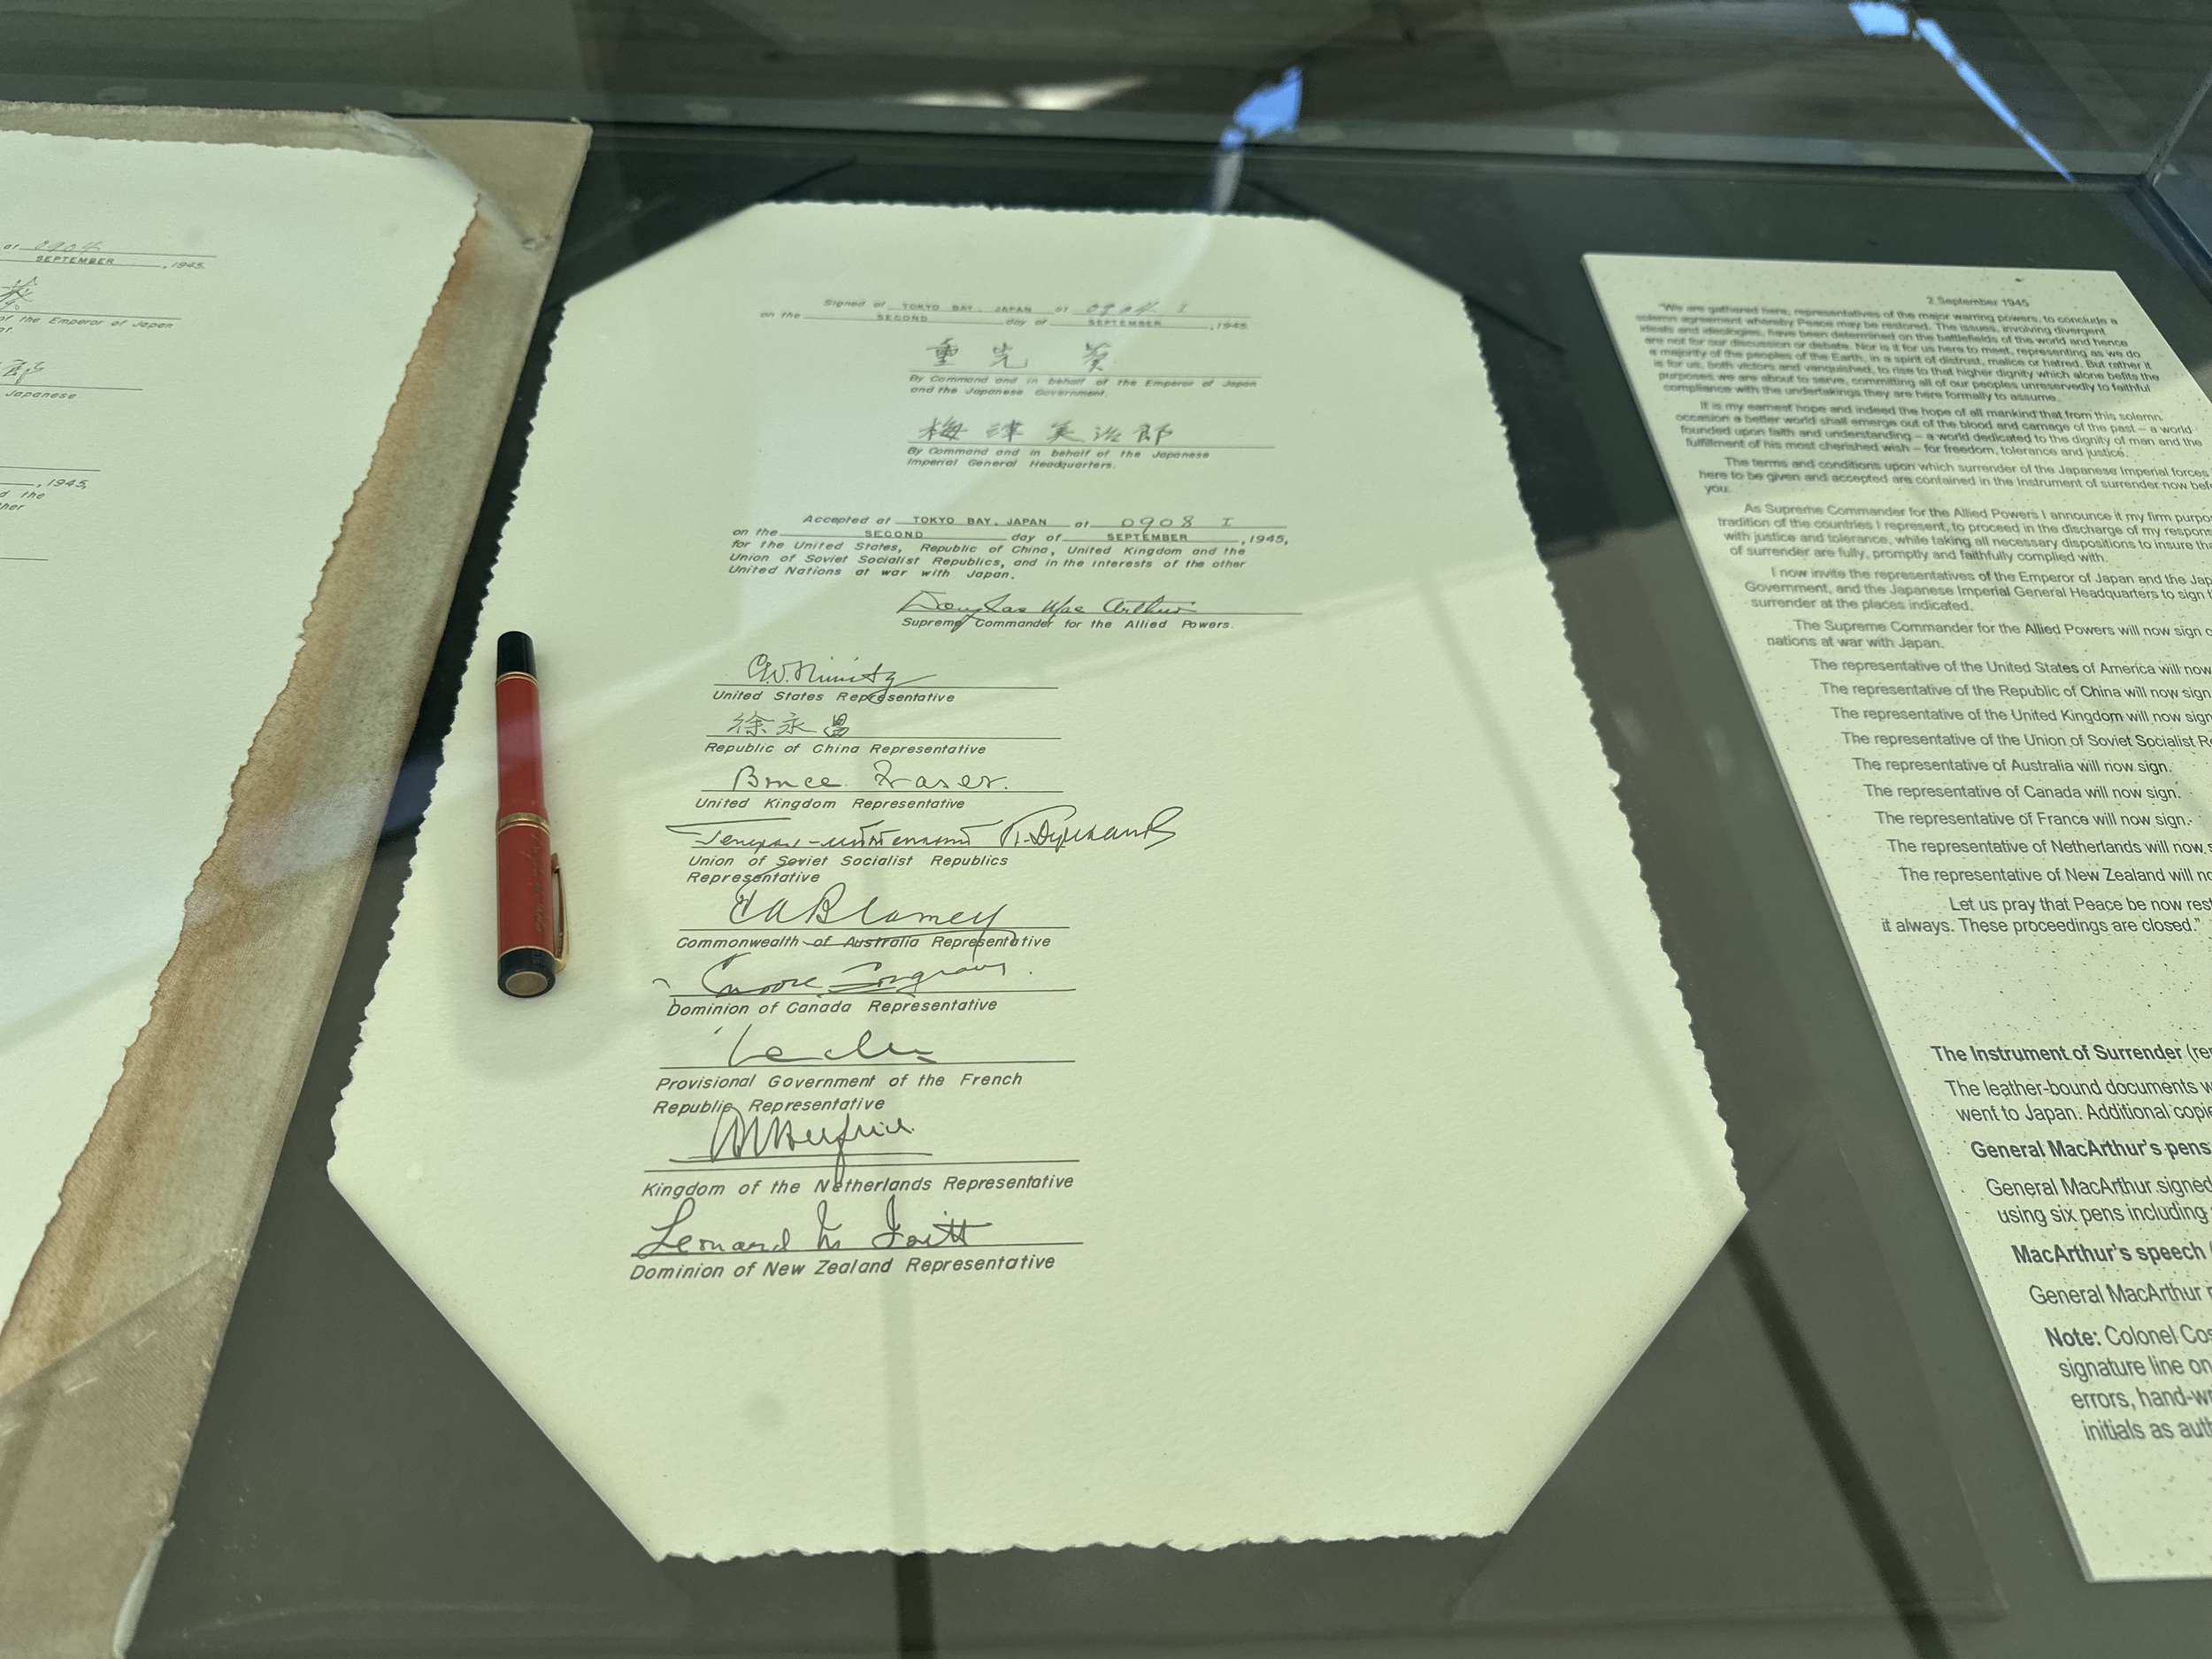 at 0904
SEPTEMBER , 1945.
of the Emperor of Japan
郎
Japanese
, 1945,
the
Signed at TOKYO BAY, JAPAN at 0904 I
on the SECOND day of SEPTEMBER , 1945.
重光 葵
By Command and in behalf of the Emperor of Japan
and the Japanese Government.
梅津美治郎
By Command and in behalf of the Japanese
Imperial General Headquarters.
Accepted at TOKYO BAY, JAPAN at 0908 I
on the SECOND day of SEPTEMBER , 1945,
for the United States, Republic of China, United Kingdom and the
Union of Soviet Socialist Republics, and in the interests of the other
United Nations at war with Japan.
Douglas MacArthur
Supreme Commander for the Allied Powers.
C.W. Nimitz
United States Representative
徐永昌
Republic of China Representative
Bruce Fraser.
United Kingdom Representative
Union of Soviet Socialist Republics
Representative
T A Blamey
Commonwealth of Australia Representative
Moore Cosgrave.
Dominion of Canada Representative
Provisional Government of the French
Republic Representative
Kingdom of the Netherlands Representative
Leonard M Isitt
Dominion of New Zealand Representative
2 September 1945
"We are gathered here, representatives of the major warring powers, to conclude a
solemn agreement whereby Peace may be restored. The issues, involving divergent
ideals and ideologies, have been determined on the battlefields of the world and hence
are not for our discussion or debate. Nor is it for us here to meet, representing as we do
a majority of the peoples of the Earth, in a spirit of distrust, malice or hatred. But rather it
is for us, both victors and vanquished, to rise to that higher dignity which alone befits the
purposes we are about to serve, committing all of our peoples unreservedly to faithful
compliance with the undertakings they are here formally to assume.
It is my earnest hope and indeed the hope of all mankind that from this solemn
occasion a better world shall emerge out of the blood and carnage of the past – a world
founded upon faith and understanding – a world dedicated to the dignity of man and the
fulfillment of his most cherished wish – for freedom, tolerance and justice.
The terms and conditions upon which surrender of the Japanese Imperial forces
here to be given and accepted are contained in the Instrument of surrender now bef
you.
As Supreme Commander for the Allied Powers I announce it my firm purpo
tradition of the countries I represent, to proceed in the discharge of my respons
with justice and tolerance, while taking all necessary dispositions to insure tha
of surrender are fully, promptly and faithfully complied with.
I now invite the representatives of the Emperor of Japan and the Jap
Government, and the Japanese Imperial General Headquarters to sign t
surrender at the places indicated.
The Supreme Commander for the Allied Powers will now sign o
nations at war with Japan.
The representative of the United States of America will now
The representative of the Republic of China will now sign
The representative of the United Kingdom will now sign
The representative of the Union of Soviet Socialist R
The representative of Australia will now sign.
The representative of Canada will now sign.
The representative of France will now sign.
The representative of Netherlands will now s
The representative of New Zealand will no
Let us pray that Peace be now rest
it always. These proceedings are closed."
The Instrument of Surrender (re
The leather-bound documents w
went to Japan. Additional copie
General MacArthur's pens
General MacArthur signed
using six pens including
MacArthur's speech (
General MacArthur r
Note: Colonel Cos
signature line on
errors, hand-wr
initials as auth